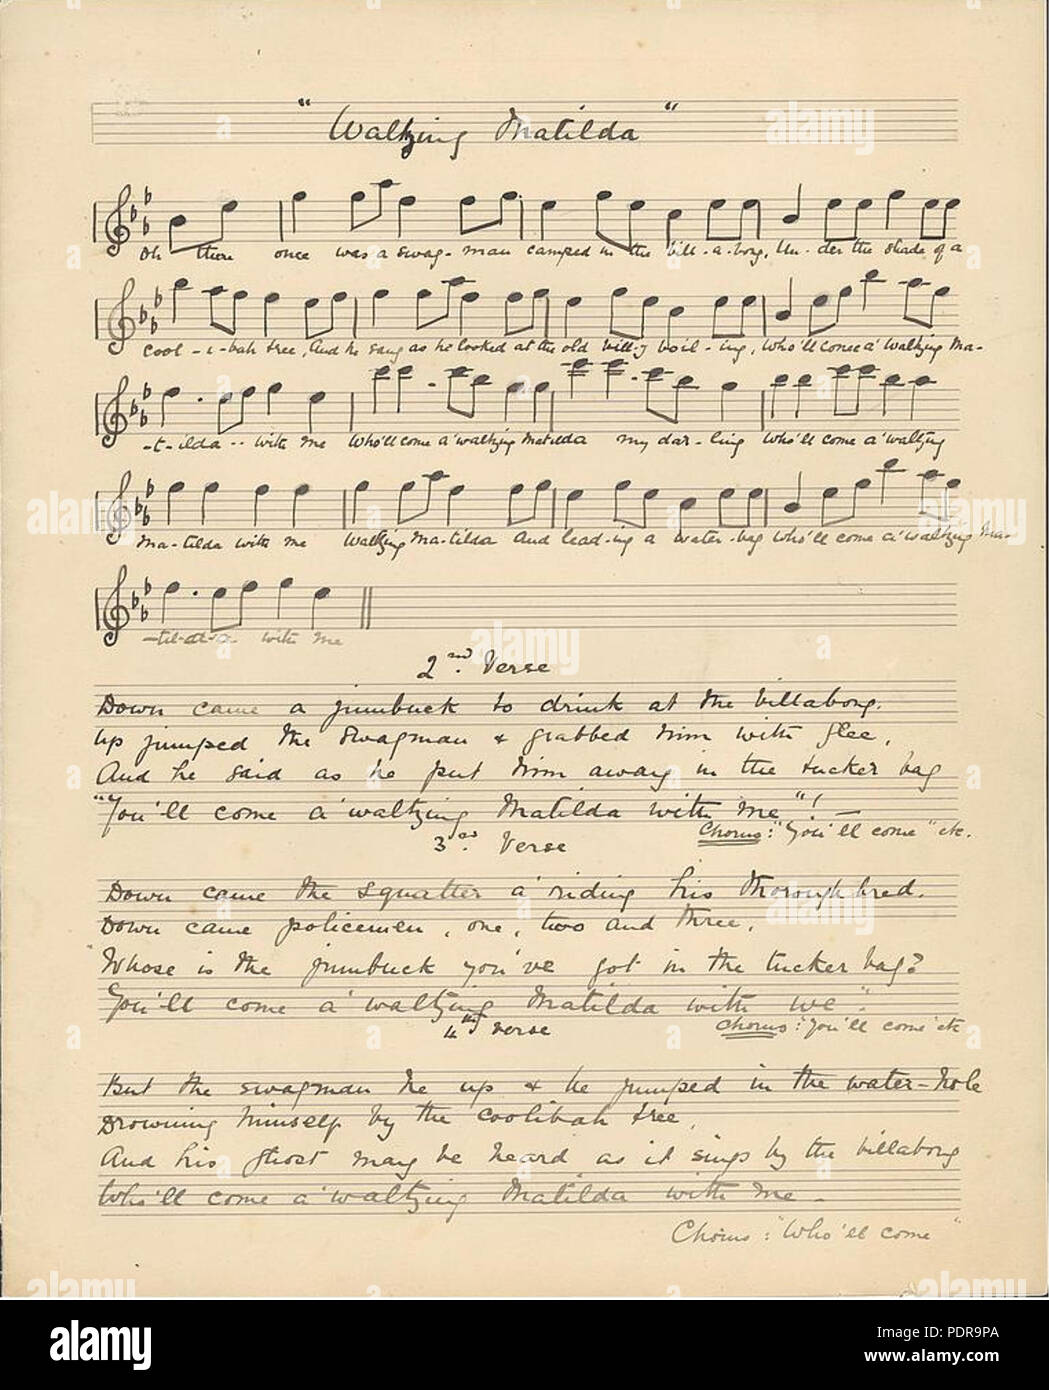 "Waltzing Matilda"
Oh there once was a swag-man camped in the bill-a-bong, Un-der the shade of a
cool-i-bah tree, And he sang as he looked at the old billy boil-ing, Who'll come a' waltzing Ma-
-t-ilda -- with me Who'll come a' waltzing Matilda my dar-ling Who'll come a' waltzing
Ma-tilda with me Waltzing Ma-tilda And lead-ing a water-bag Who'll come a' waltzing Ma-
with me
2nd. Verse
Down came a jumbuck to drink at the billabong.
Up jumped the swagman & grabbed him with glee,
And he said as he put him away in the tucker bag
"You'll come a' waltzing Matilda with me"! —
Chorus: "You'll come" etc.
3rd. Verse
Down came the squatter a' riding his thoroughbred.
Down came policemen, one, two and three.
"Whose is the jumbuck you've got in the tucker bag?
You'll come a' waltzing Matilda with we".
Chorus: "You'll come" etc
4th verse
But the swagman he up & he jumped in the water-hole
Drowning himself by the coolibah tree,
And his ghost may be heard as it sings by the billabong
Who'll come a' waltzing Matilda with me -
Chorus: "Who'll come"
alamy
Image ID: PDR9PA
www.alamy.com